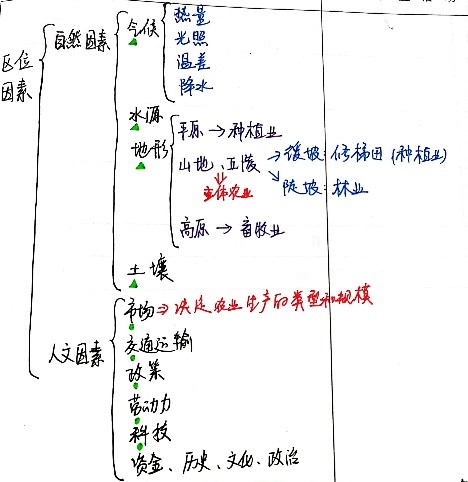 区位因素
自然因素
气候
热量
光照
温差
降水
水源
地形
平原→种植业
山地、丘陵→缓坡:修梯田(种植业)
立体农业
陡坡:林业
高原→畜牧业
土壤
人文因素
市场⇒决定农业生产的类型和规模
交通运输
政策
劳动力
科技
资金、历史、文化、政治